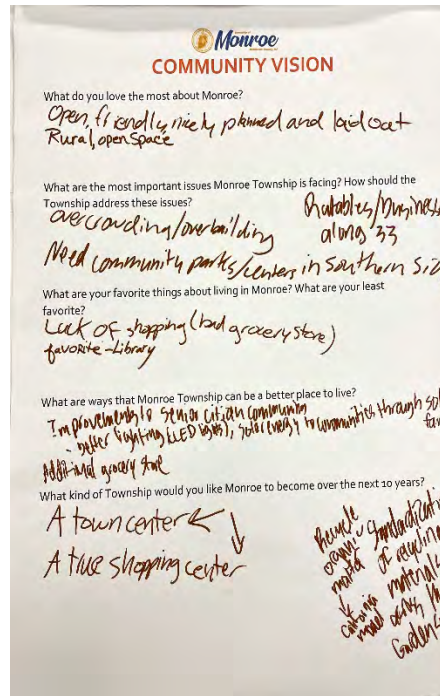 Monroe
COMMUNITY VISION
What do you love the most about Monroe?
Open, friendly, nicely planned and laid out
Rural, open space
What are the most important issues Monroe Township is facing? How should the
Township address these issues?
overcrowding/overbuilding
Ratables/business
along 33
Need community parks/centers in Southern Sid
What are your favorite things about living in Monroe? What are your least
favorite?
Lack of shopping (bad grocery store)
favorite - Library
What are ways that Monroe Township can be a better place to live?
Improvements to senior citizen community
- better lighting (LED lights), solar energy to communities through sol
far
Additional grocery store
What kind of Township would you like Monroe to become over the next 10 years?
A town center
A true shopping center
Recycle
organic
matter
Standardizati
of recycling
materials
Garden